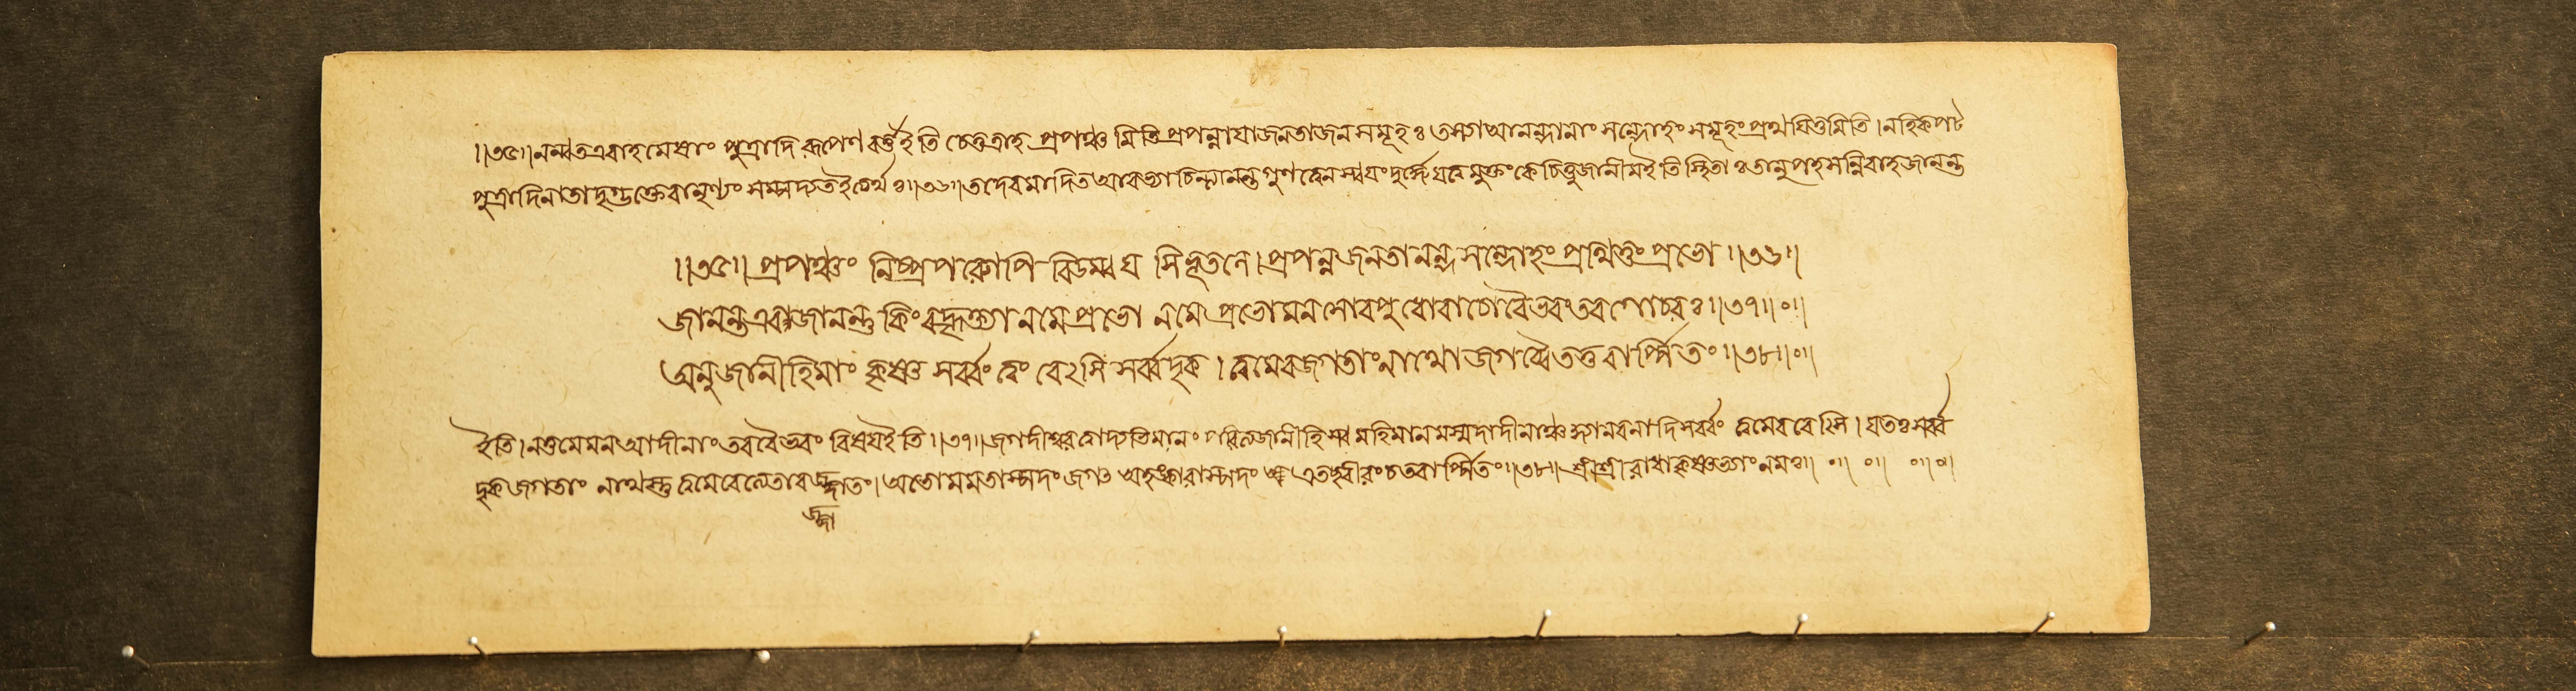 ॥৩৫॥ নন্বতএবাহমেষাং পুত্রাদিরূপেণ বর্ত্তইতি চেত্তত্রাহ প্রপঞ্চমিতি প্রপন্নাযাজনতাজনসমূহঃ তস্যাআনন্দানাং সন্দোহং সমূহং প্রথযিতুমিতি।নহিকপট
পুত্রাদিনাতাদৃগ্ভক্তেরানৃণ্যং সম্পদ্যতইত্যর্থঃ॥৩৬॥তদেবমাদিতআরভ্যাচিন্ত্যানন্তগুণত্বেনস্বযংদুর্জ্ঞেযত্বমুক্তংকেচিত্তুজানীমইতি স্থিতাঃতানুপহসন্নিবাহজানন্ত
॥৩৫॥ প্রপঞ্চং নিষ্প্রপঞ্চোপি বিডম্বযসিভূতলে।প্রপন্নজনতানন্দসন্দোহংপ্রথিতুংপ্রভো॥৩৬॥
জানন্তএবজানন্তু কিংবহূক্ত্যানমেপ্রভো নমেপ্রভোমনসোবপুষোবাচোবৈভবংতবগোচরঃ॥৩৭॥০॥
অনুজানীহিমাং কৃষ্ণ সর্ব্বং ত্বং বেৎসি সর্ব্বদৃক।ত্বমেবজগতাংনাথোজগচ্চৈতত্তবার্প্পিতং॥৩৮॥০॥
ইতি।নতুমেমনআদীনাং তববৈভবং বিষযইতি॥৩৭॥জগদীশ্বরত্বাদ্যভিমানং পরিত্যজানীহিস্বমহিমানমস্মদাদীনাঞ্চজ্ঞানবলাদিসর্ব্বং ত্বমেববেৎসি।যতঃসর্ব্ব
দৃকজগতাং নাথস্তু ত্বমেবেত্যেতাবজ্জ্ঞাতং।অতোমমতাস্পদংজগৎঅহঙ্কারাস্পদং এতচ্ছরীরংচতবার্প্পিতং॥৩৮॥শ্রীশ্রীরাধাকৃষ্ণাভ্যাংনমঃ॥ ০॥ ০॥ ০॥০॥
জ্জ্ঞা